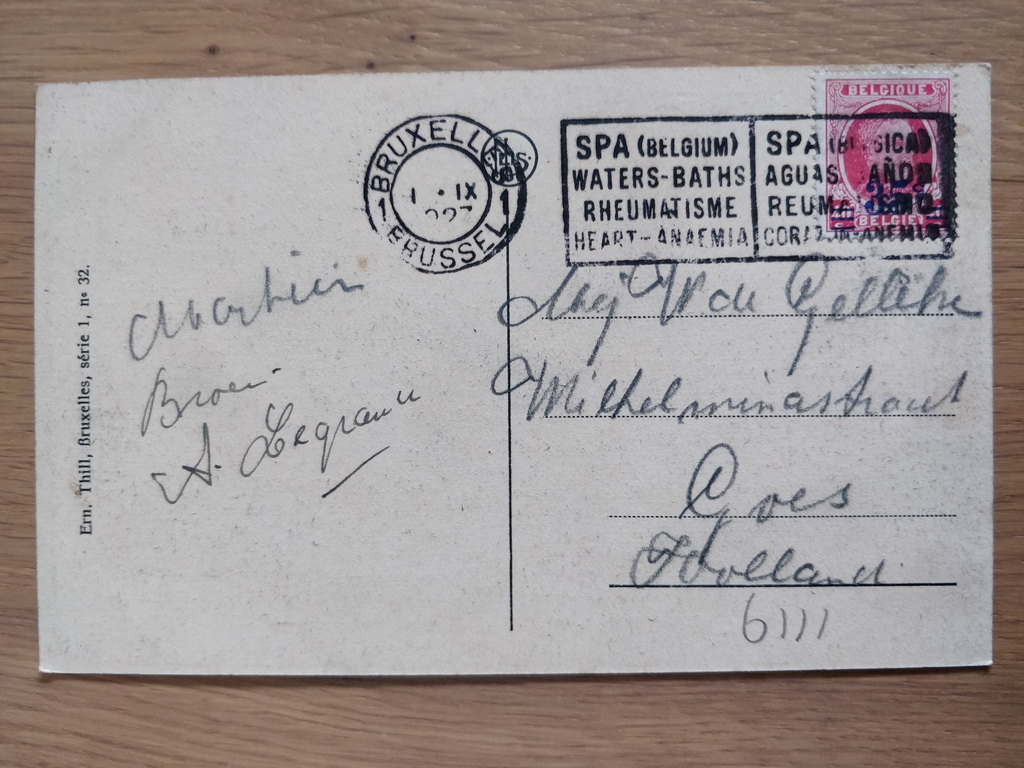 BRUXELLES
1 1
1 · IX
BRUSSEL
SPA (BELGIUM)
WATERS-BATHS
RHEUMATISME
HEART-ANAEMIA
SPA (BELGICA)
AGUAS BAÑOS
REUMATISMO
CORAZON-ANEMIA
BELGIQUE
BELGIË
Ern. Thill, Bruxelles, série 1, no 32.
A. Legrand
Wilhelminastraat
Goes
Holland
6111